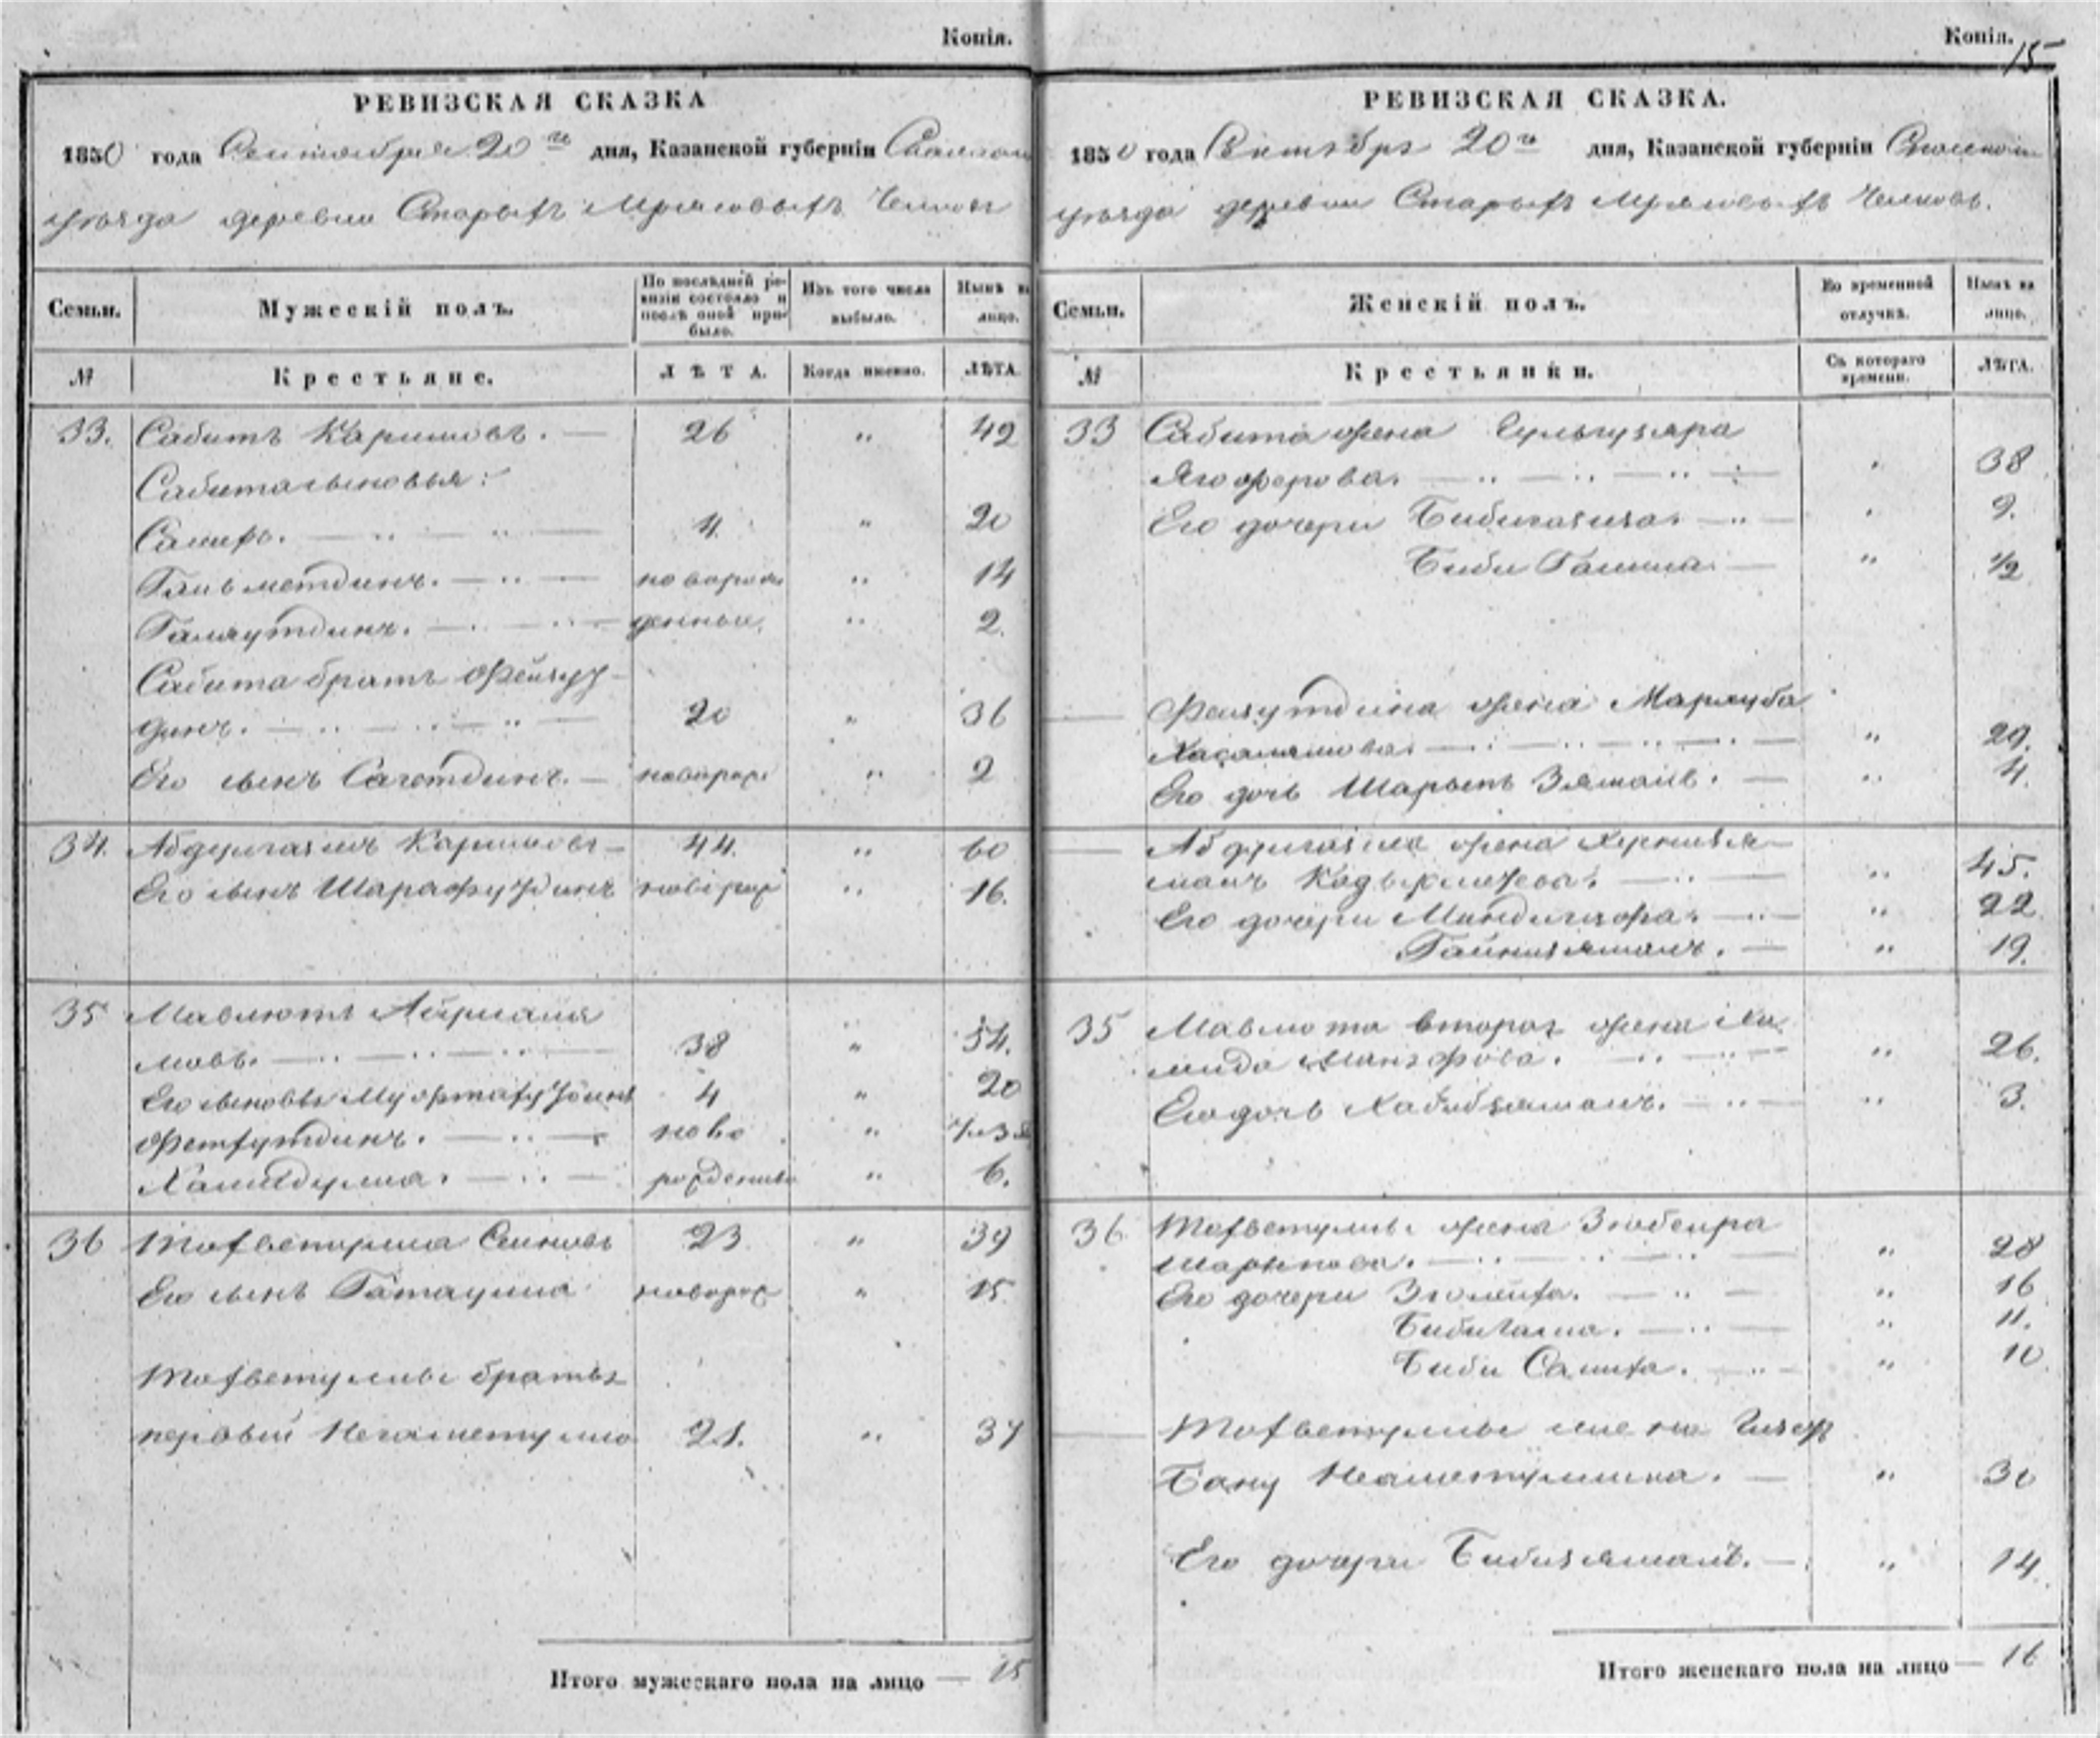 Копія.
РЕВИЗСКАЯ СКАЗКА
1850 года Сентября 20го дня, Казанской губерніи Спаскаго
уѣзда деревни Старыхъ Мрясовыхъ Челновъ
Семьи. Мужескій полъ. По послѣдней ревизіи состояло и послѣ оной прибыло. Изъ того числа выбыло. Нынѣ на лицо.
№ Крестьяне. ЛѢТА. Когда именно. ЛѢТА.
33. Сабитъ Каримовъ. — 26 " 42
Сабита сыновья:
Самиръ. 4. " 20
Гильметдинъ. новорож " 14
Галяутдинъ. денные. " 2.
Сабита братъ Фейзу
динъ. 20 " 36
Его сынъ Сагетдинъ. — новорож " 2
34. Абдулгазизъ Каримовъ — 44. " 60
Его сынъ Шарафутдинъ новорож " 16.
35 Мавлютъ Абдриали
мовъ. 38 " 54.
Его сыновья 4 " 20
Фетхутдинъ. ново "
Хамидулла. рожденные " 6.
36 Тохветулла Сеиновъ 23 " 39
Его сынъ Гатаулла новорож " 15
Тохветуллы братья
первый Негаметулла 21. " 37
Итого мужескаго пола на лицо — 15
Копія. 15
РЕВИЗСКАЯ СКАЗКА.
1850 года Сентября 20го дня, Казанской губерніи Спаскаго
уѣзда деревни Старыхъ Мрясовыхъ Челновъ.
Семьи. Женскій полъ. Во временной отлучкѣ. Нынѣ на лицо.
№ Крестьянки. Съ котораго времени. ЛѢТА.
33 Сабита жена Гульгузяра
Ягоферова. " 38
Его дочери Бибигазиза. " 9.
Биби Галима. — " 1/2
— Фейзутдина жена Марзуба
" 29.
Его дочь Шарыпъ Зямалъ. — " 4.
— Абдулгазиза жена Хурниза
малъ " 45.
Его дочери " 22
Гайнизямалъ. — " 19.
35 Мавлюта вторая жена Ха
мида Манзофова. " 26.
Его дочь Хабибзямалъ. " 3.
36 Тохветуллы жена Зюбеира
Шарыпова. " 28
Его дочери Зюлейха. " 16
Биби " 11.
Биби Салиха. " 10
— Тохветуллы
Бану Неаметуллина. — " 30
Его дочери Бибизямалъ. — " 14.
Итого женскаго пола на лицо — 16